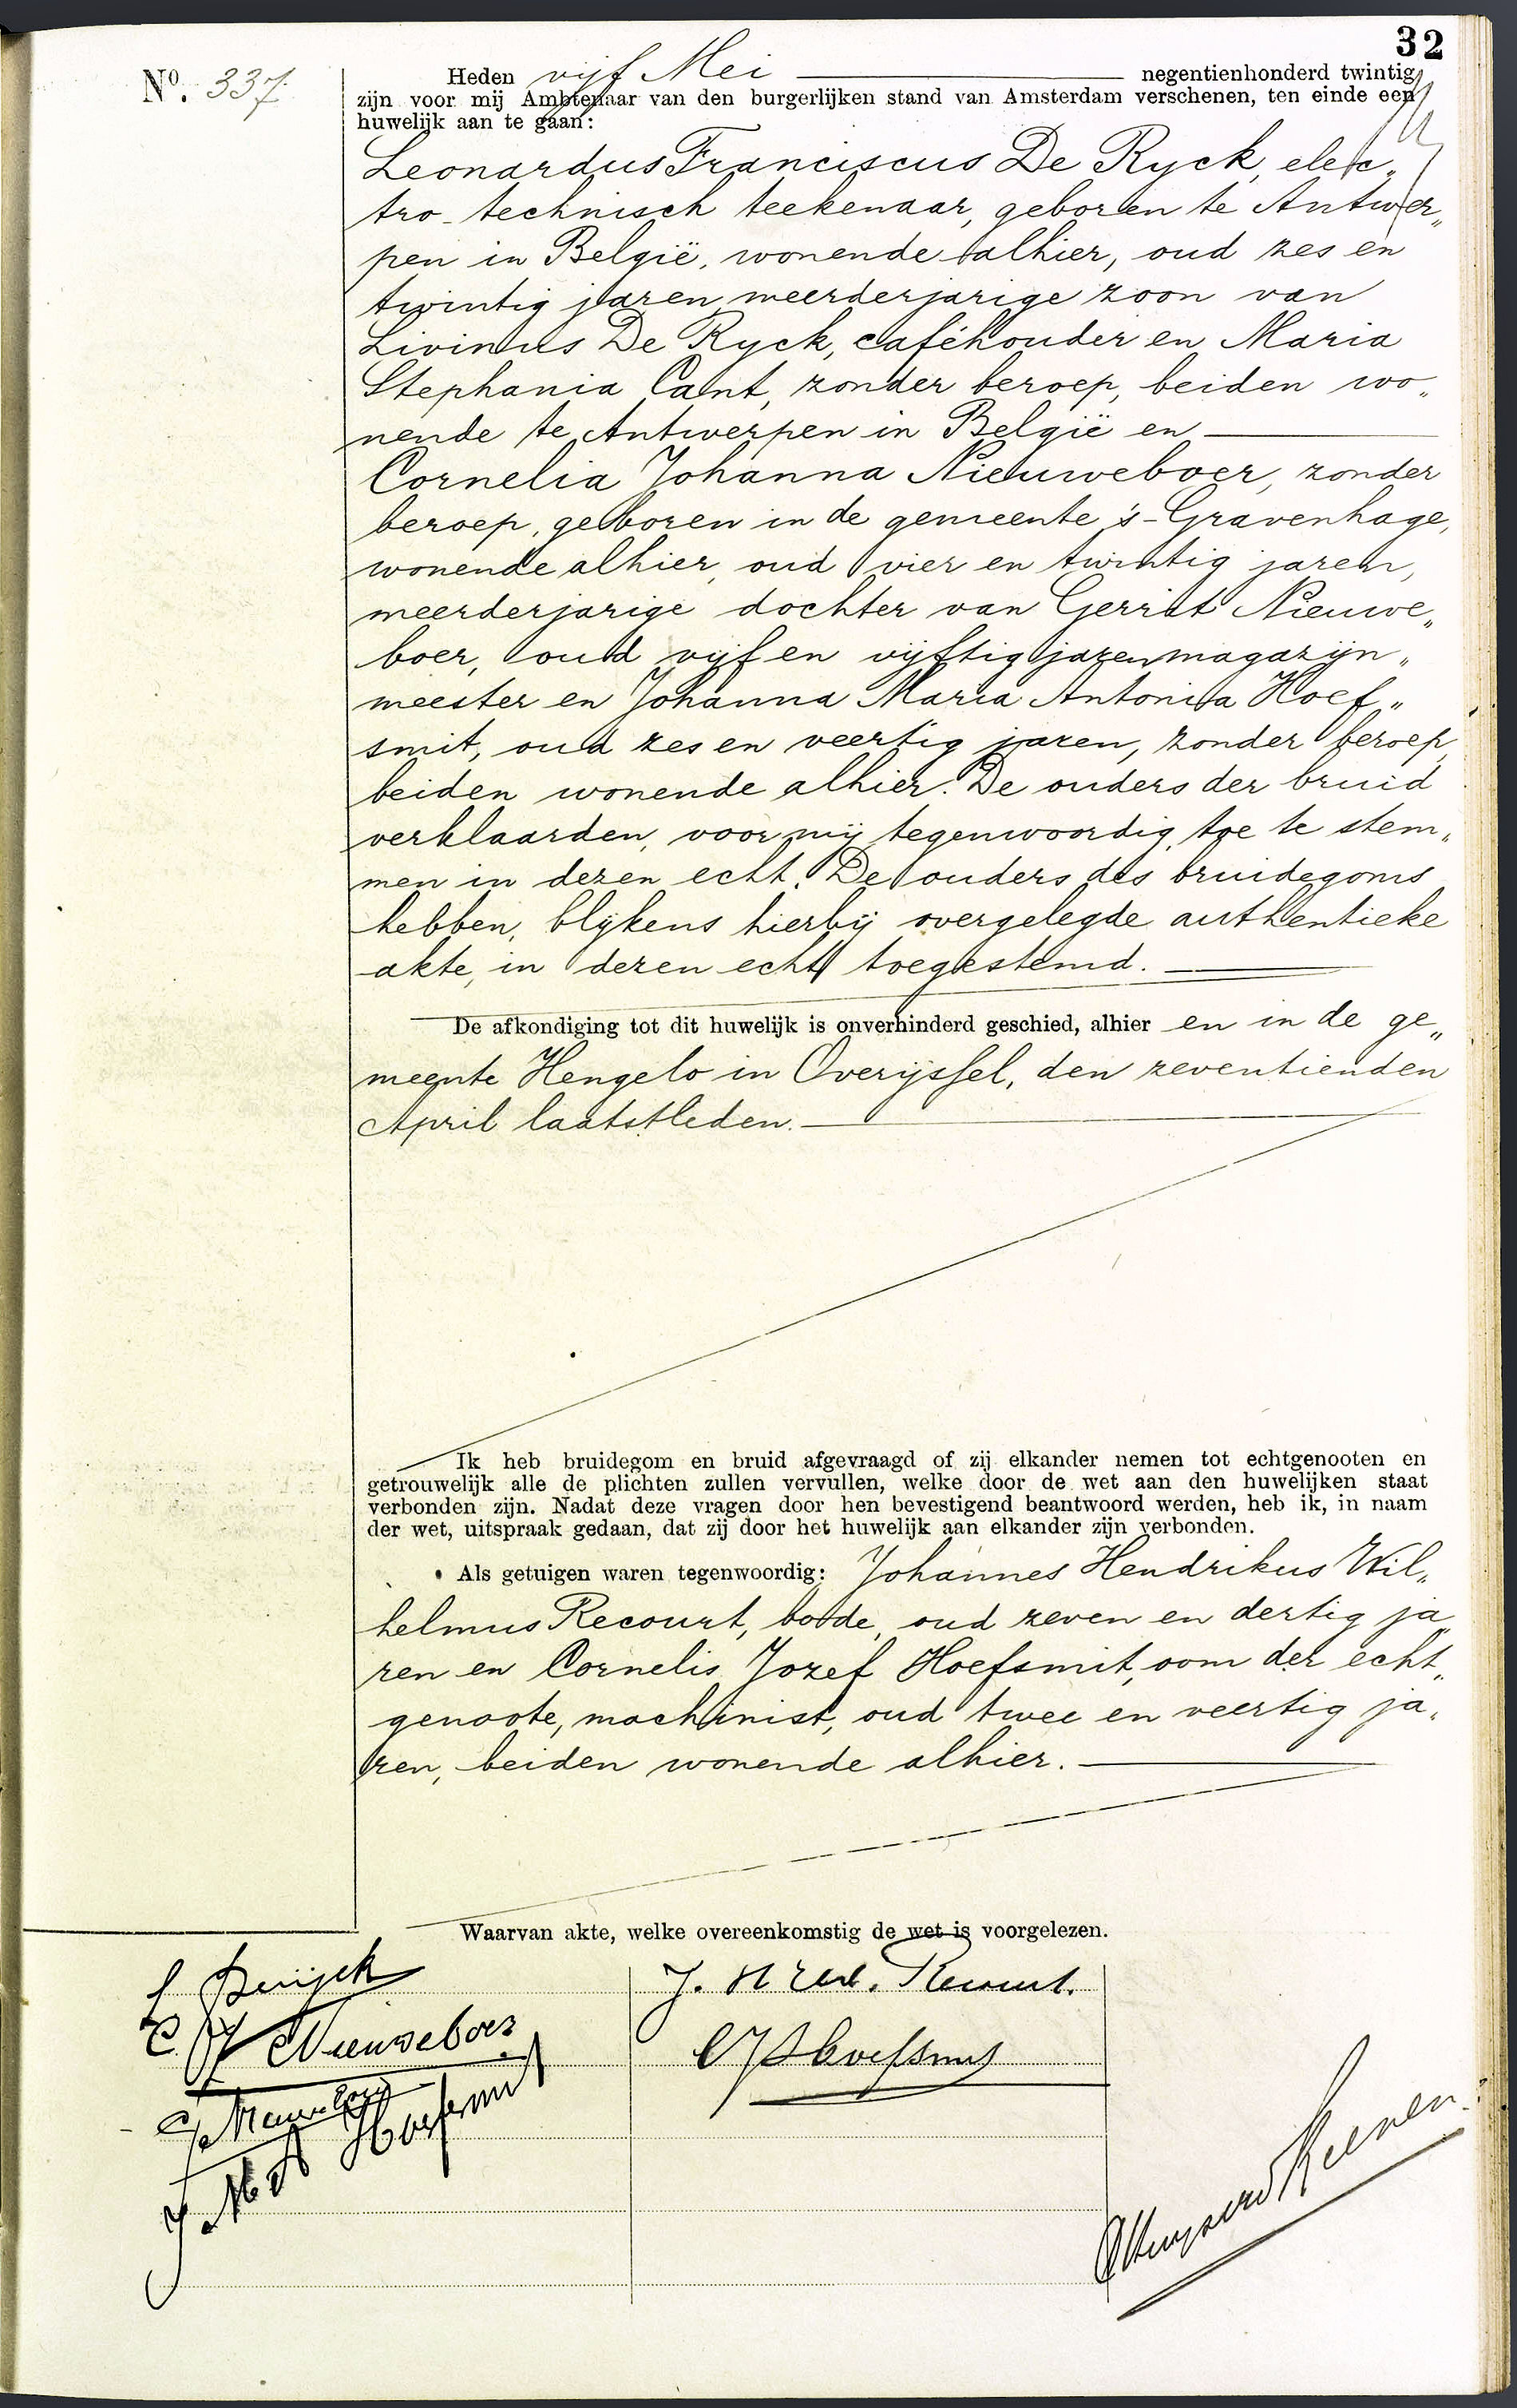 32
No. 337.
Heden vijf Mei negentienhonderd twintig
zijn voor mij Ambtenaar van den burgerlijken stand van Amsterdam verschenen, ten einde een
huwelijk aan te gaan:
Leonardus Franciscus De Ryck, elec„
tro-technisch teekenaar, geboren te Antwer„
pen in België, wonende alhier, oud zes en
twintig jaren meerderjarige zoon van
Livinus De Ryck, caféhouder en Maria
Stephania Cant, zonder beroep, beiden wo„
nende te Antwerpen in België en
Cornelia Johanna Nieuweboer, zonder
beroep, geboren in de gemeente 's-Gravenhage,
wonende alhier, oud vier en twintig jaren,
meerderjarige dochter van Gerrit Nieuwe„
boer, oud vijf en vijftig jaren magazijn„
meester en Johanna Maria Antonia Hoef„
smit, oud zes en veertig jaren, zonder beroep,
beiden wonende alhier. De ouders der bruid
verklaarden, voor mij tegenwoordig, toe te stem„
men in dezen echt. De ouders des bruidegoms
hebben, blijkens hierbij overgelegde authentieke
akte, in dezen echt toegestemd.
De afkondiging tot dit huwelijk is onverhinderd geschied, alhier en in de ge„
meente Hengelo in Overijssel, den zeventienden
April laatstleden.
Ik heb bruidegom en bruid afgevraagd of zij elkander nemen tot echtgenooten en
getrouwelijk alle de plichten zullen vervullen, welke door de wet aan den huwelijken staat
verbonden zijn. Nadat deze vragen door hen bevestigend beantwoord werden, heb ik, in naam
der wet, uitspraak gedaan, dat zij door het huwelijk aan elkander zijn verbonden.
Als getuigen waren tegenwoordig: Johannes Hendrikus Wil„
helmus Recourt, bode, oud zeven en dertig ja„
ren en Cornelis Jozef Hoefsmit, oom der echt„
genoote, machinist, oud twee en veertig ja„
ren, beiden wonende alhier.
Waarvan akte, welke overeenkomstig de wet is voorgelezen.
L Deryck
C. J. Nieuweboer
G Nieuweboer
J. M A Hoefsmit
J. H W. Recourt.
C J Hoefsmit